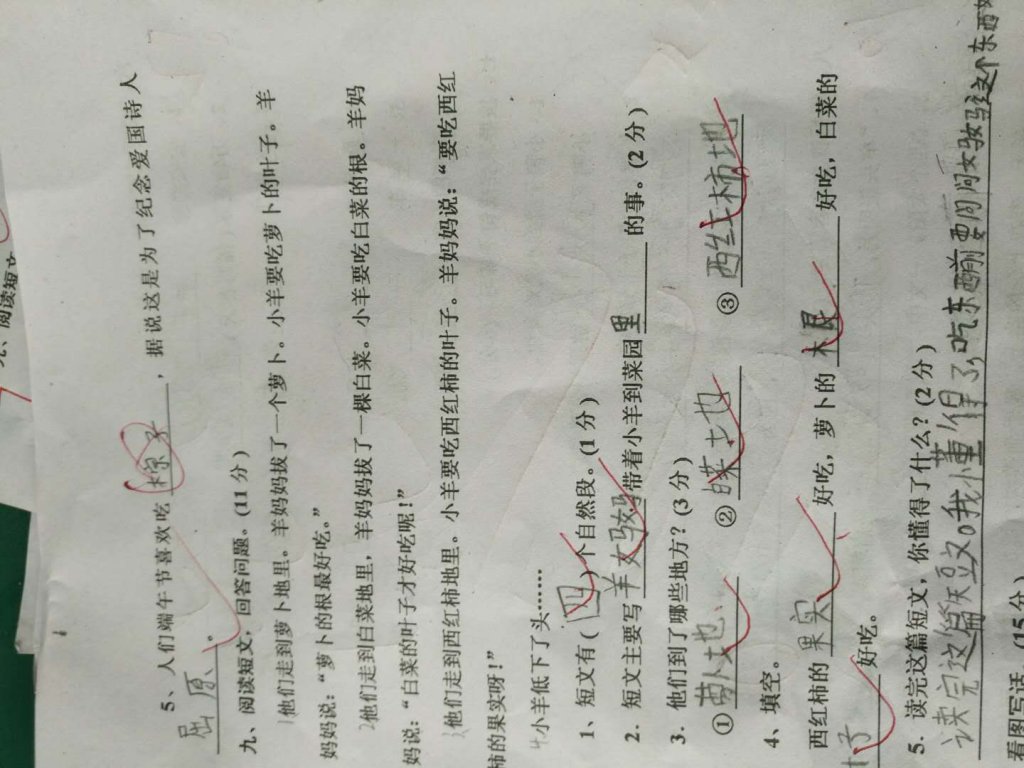 九、阅读短文
5、人们端午节喜欢吃粽子，据说这是为了纪念爱国诗人
屈原。
九、阅读短文，回答问题。(11分)
他们走到萝卜地里。羊妈妈拔了一个萝卜。小羊要吃萝卜的叶子。羊
妈妈说：“萝卜的根最好吃。”
他们走到白菜地里，羊妈妈拔了一棵白菜。小羊要吃白菜的根。羊妈
妈说：“白菜的叶子才好吃呢！”
他们走到西红柿地里。小羊要吃西红柿的叶子。羊妈妈说：“要吃西红
柿的果实呀！”
小羊低下了头……
1、短文有(四)个自然段。(1分)
2．短文主要写羊妈妈带着小羊到菜园里的事。(2分)
3．他们到了哪些地方？(3分)
①萝卜地 ②菜地 ③西红柿地
4、填空。
西红柿的果实好吃，萝卜的根好吃，白菜的
叶子好吃。
5．读完这篇短文，你懂得了什么？(2分)
读完这篇短文。我懂得了吃东西前要问问妈妈这个东西
看图写话。(15分)